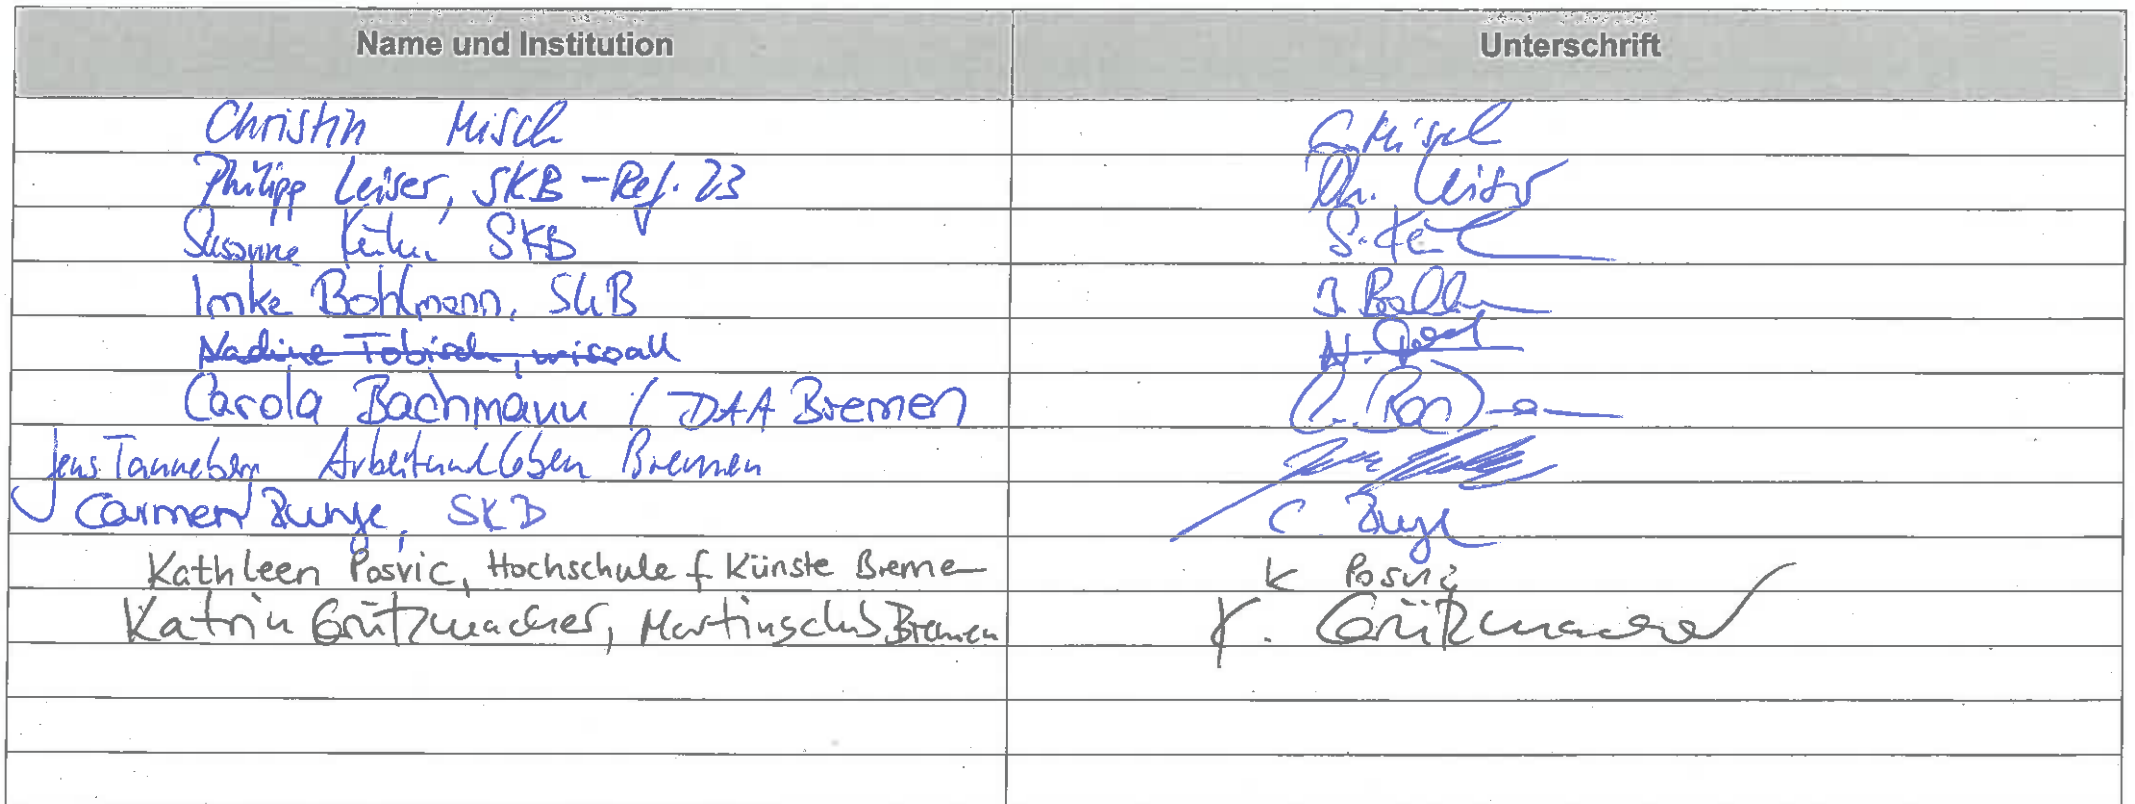 Name und Institution Unterschrift
Christin Misch C. Misch
Philipp Leiser, SKB - Ref. 23 Ph. Leiser
Susanne SKB S.
Imke Bohlmann, SKB I.
Nadine Tobisch, wisoak N.
Carola Bachmann / DAA Bremen C.
Jens Tanneberg Arbeit und Leben Bremen
Carmen Bunge, SKB C. Bunge
Kathleen Posvic, Hochschule f Künste Bremen K Posvic
Katrin Grützmacher, Martinsclub Bremen K. Grützmacher